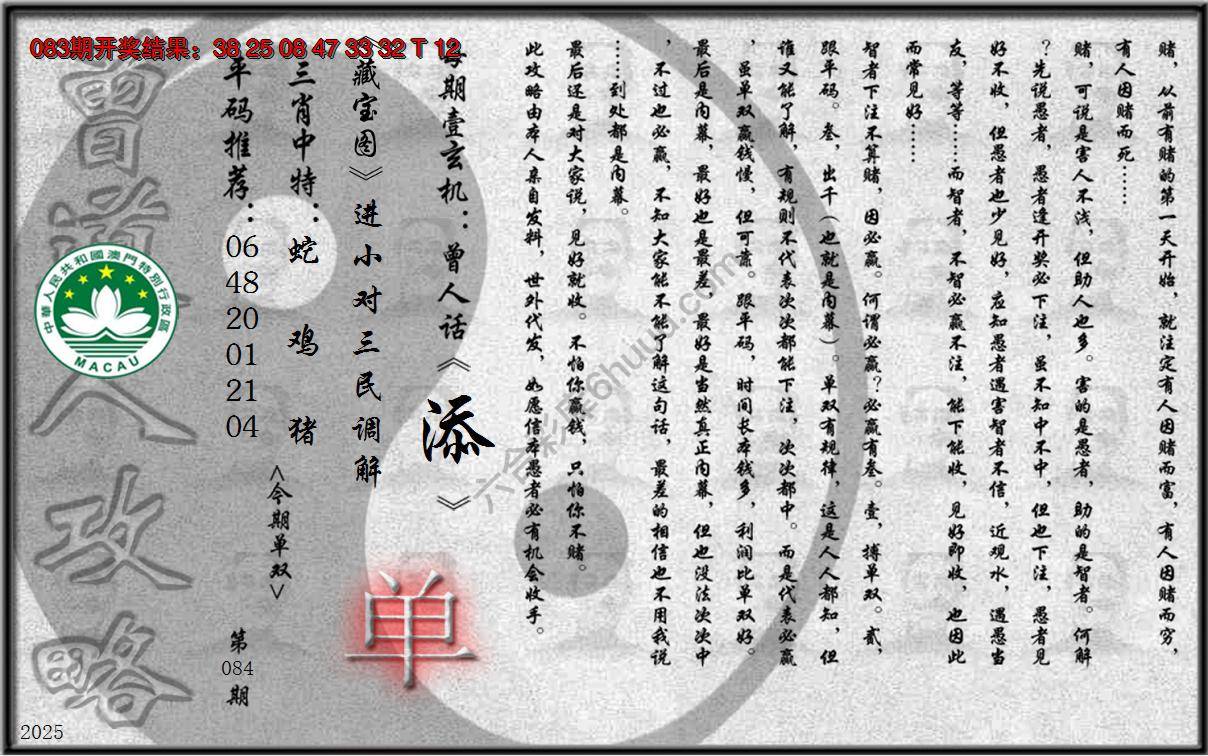 083期开奖结果：38 25 08 47 33 32 T 12
赌，从前有赌的第一天开始，就注定有人因赌而富，有人因赌而穷，
有人因赌而死……
赌，可说是害人不浅，但助人也多。害的是愚者，助的是智者。何解
？先说愚者，愚者逢开奖必下注，虽不知中不中，但也下注，愚者见
好不收，但愚者也少见好，应知愚者遇害智者不信，近观水，遇愚当
友，等等……而智者，不智必赢不注，能下能收，见好即收，也因此
而常见好……
智者下注不算赌，因必赢。何谓必赢？必赢有叁。壹，搏单双。贰，
跟平码。叁，出千（也就是内幕）。单双有规律，这是人人都知，但
谁又能了解，有规则不代表次次都能下注，次次都中。而是代表必赢
，虽单双赢钱慢，但可靠。跟平码，时间长本钱多，利润比单双好。
最后是内幕，最好也是最差，最好是当然真正内幕，但也没法次次中
，不过也必赢，不知大家能不能了解这句话，最差的相信也不用我说
……到处都是内幕。
最后还是对大家说，见好就收。不怕你赢钱，只怕你不赌。
此攻略由本人亲自发料，世外代发，如愿信本愚者必有机会收手。
每期壹玄机：曾人话《添》
《藏宝图》进小对三民调解
三肖中特：蛇 鸡 猪
平码推荐：06 48 20 01 21 04
<今期单双>
单
第084期
曾道人攻略
中華人民共和國澳門特別行政區
MACAU
六合彩库6huuu.com
2025